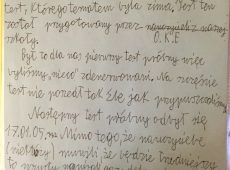 test, którego tematem była zima. Test ten
został przygotowany przez nauczycieli z naszej
szkoły. O.K.E
Był to dla nas pierwszy test próbny więc
byliśmy nieco zdenerwowani. Na szczęście
test nie poszedł tak źle jak przypuszczaliśmy.
Następny test próbny odbył się
17.01.05r. Mimo tego, że nauczyciele
(niektórzy) mówili, że będzie trudniejszy
to